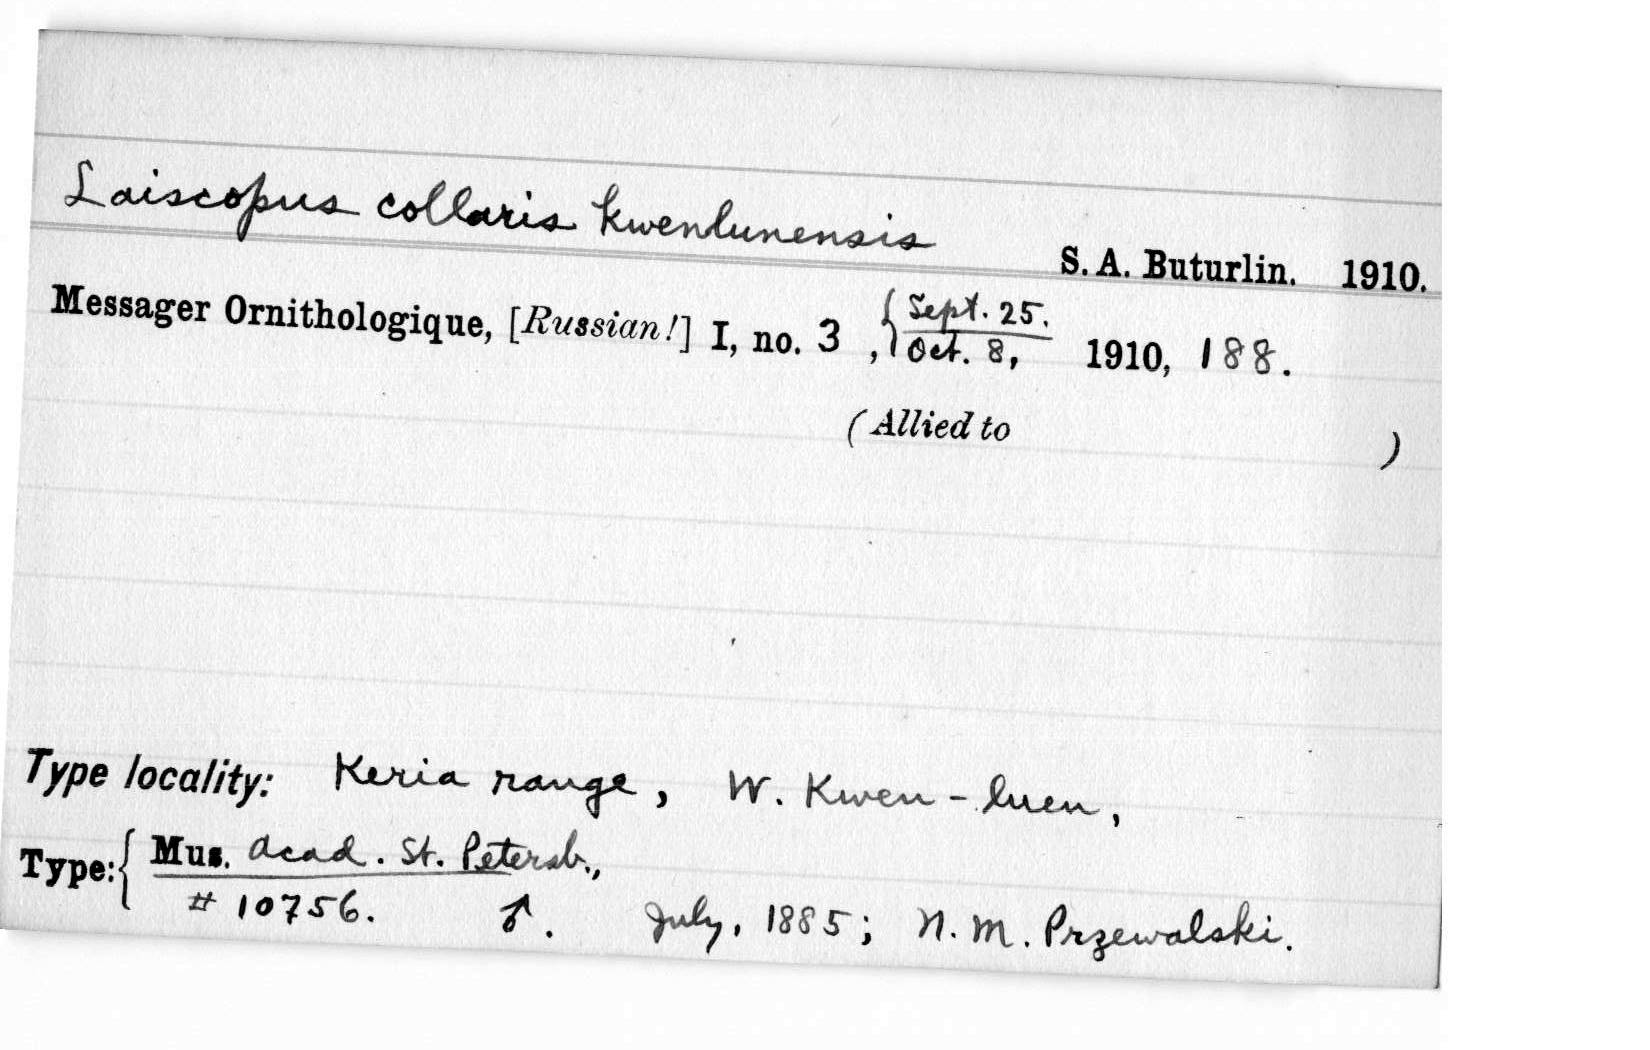 Laiscopus collaris kwenlunensis S. A. Buturlin. 1910.
Messager Ornithologique, [Russian!] I, no. 3, { Sept. 25. / Oct. 8, 1910, 188.
(Allied to )
Type locality: Keria range, W. Kwen-luen,
Type: { Mus. Acad. St. Petersb.,
# 10756. ♂. July, 1885; N. M. Przewalski.